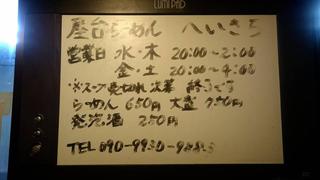 LUMIPAD
屋台らーめん へいきち
営業日 水・木 20:00〜2:00
金・土 20:00〜4:00
※スープ売切れ次第 終了です
らーめん 650円 大盛 750円
発泡酒 250円
TEL 090-9930-